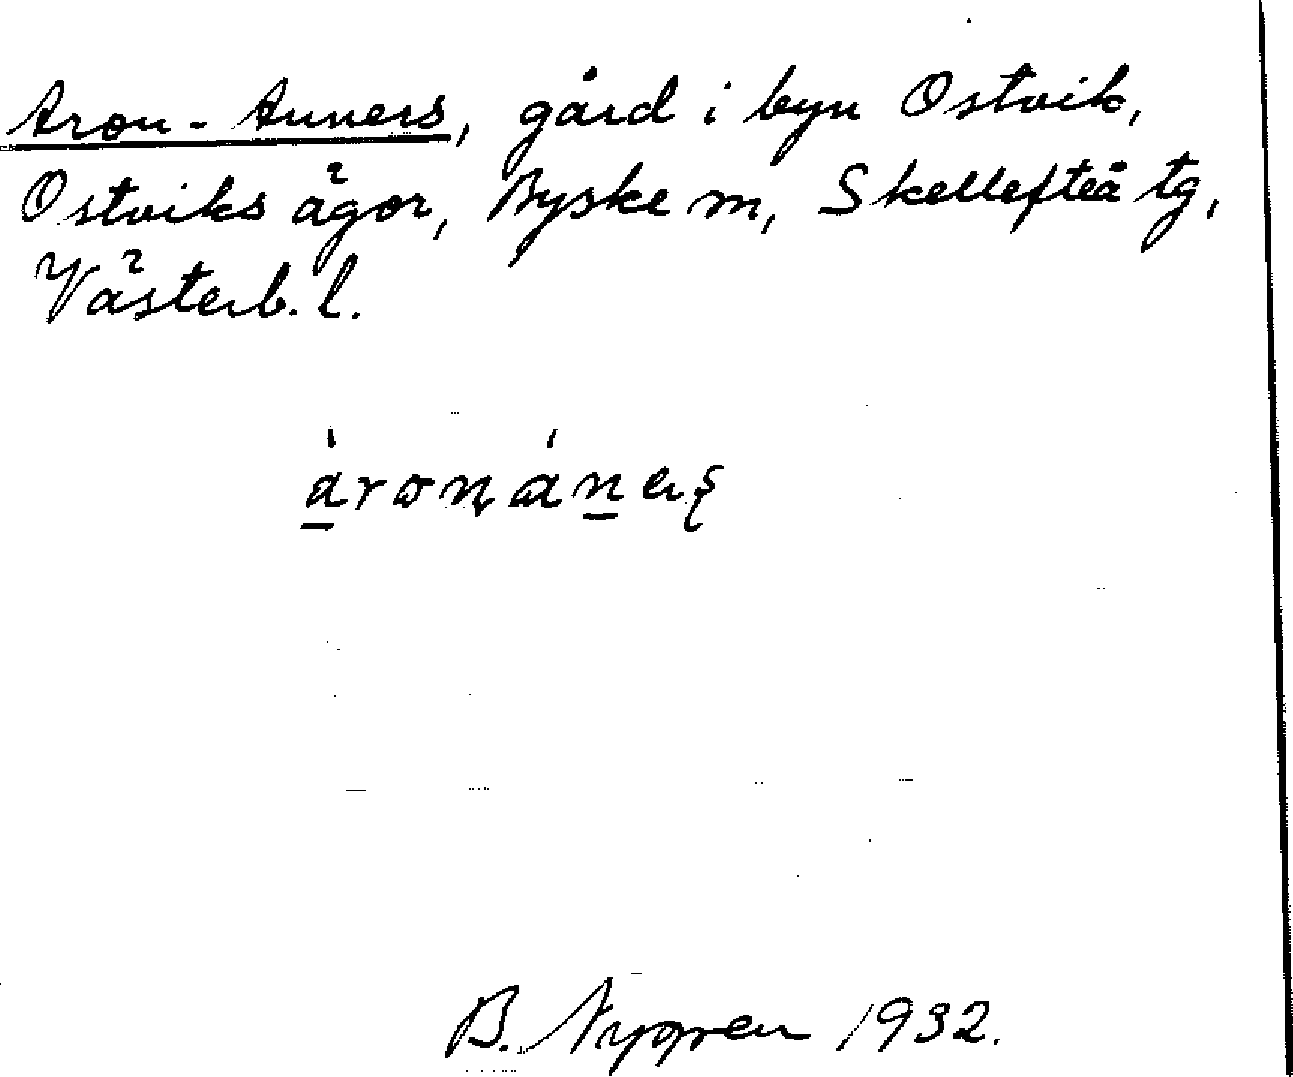 Aron-Anners, gård i byn Ostvik,
Ostviks ägor, Byske sn, Skellefteå tg,
Västerb. l.
àronánerʂ
B. Nygren 1932.